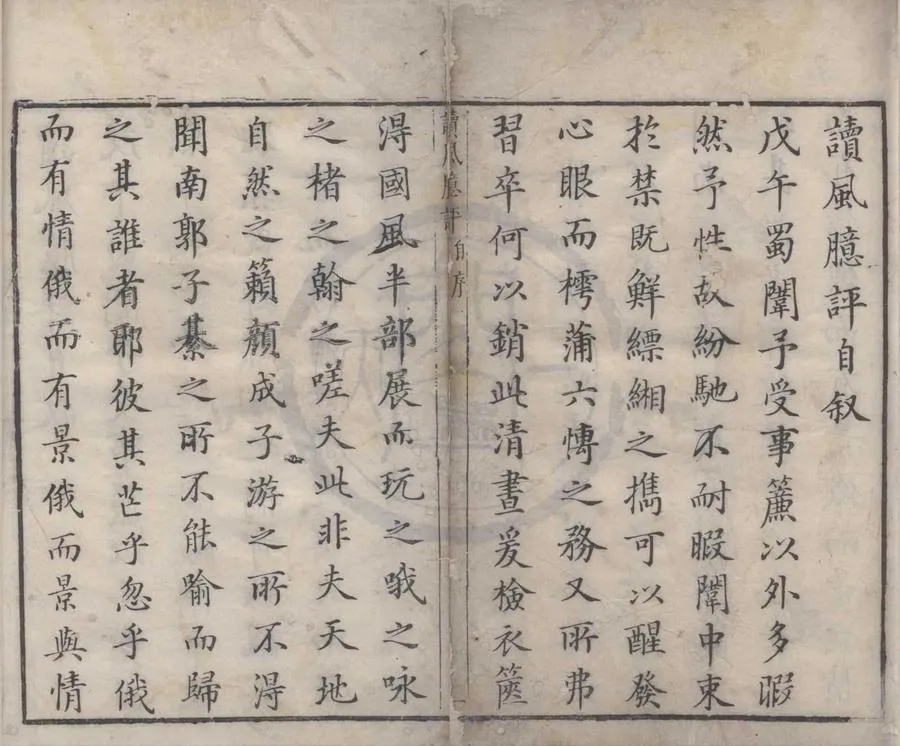 讀風臆評自叙
戊午蜀闈予受事簾以外多暇
然予性故紛馳不耐暇闈中束
於禁既鮮縹緗之擕可以醒發
心眼而樗蒲六愽之務又所弗
習卒何以銷此清晝爰檢衣篋
讀風臆評自序
得國風半部展而玩之哦之咏
之楮之翰之嗟夫此非夫天地
自然之籟顔成子游之所不得
聞南郭子綦之所不能喻而歸
之其誰者耶彼其芒乎忽乎俄
而有情俄而有景俄而景與情